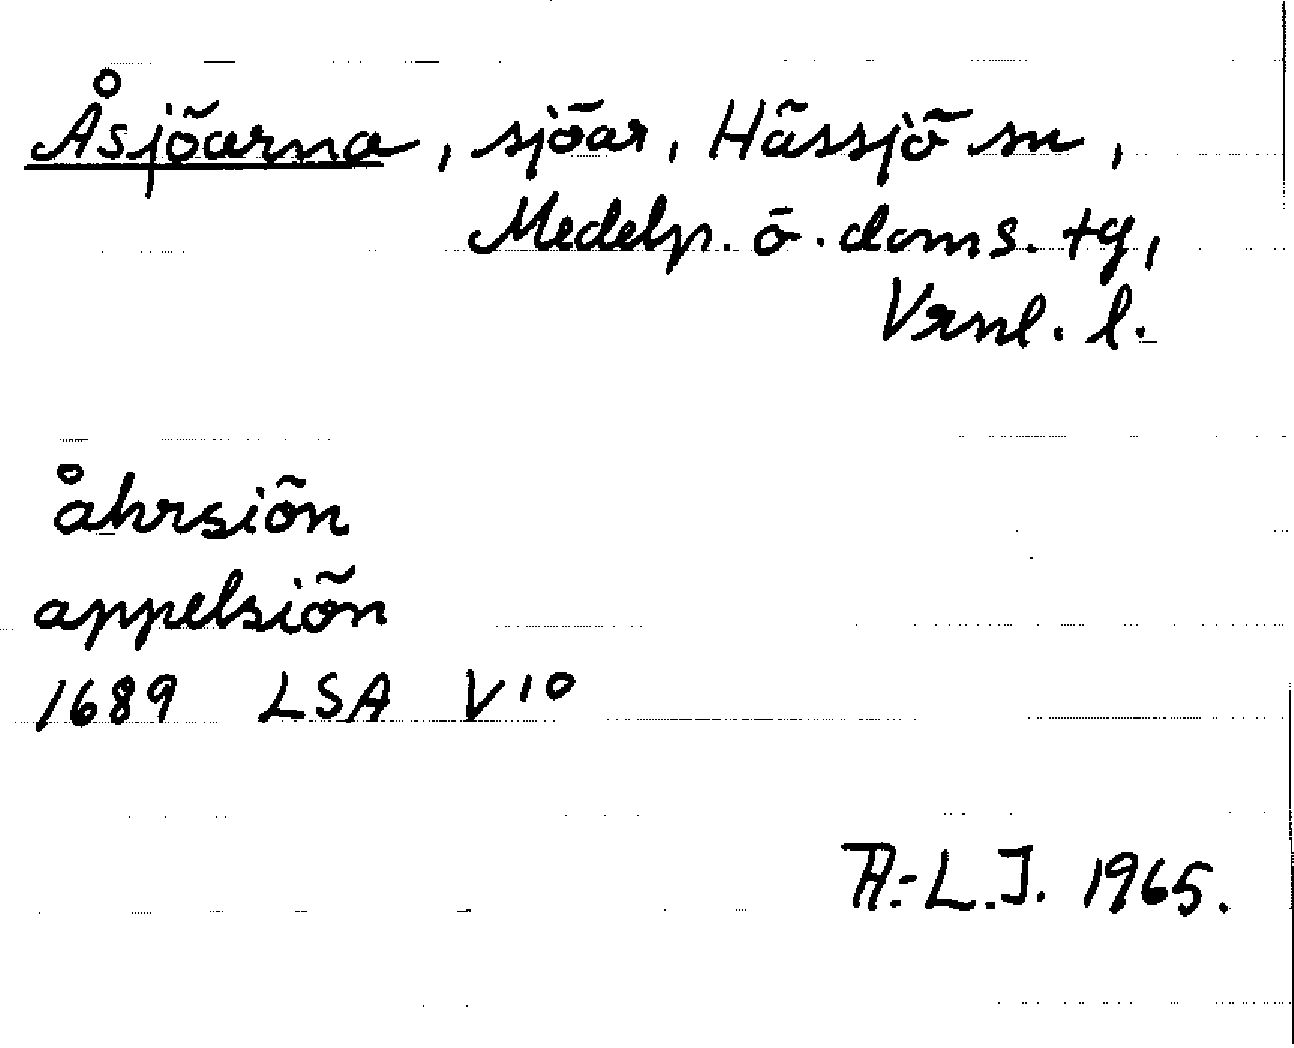 Åsjöarna, sjöar, Hässjö sn,
Medelp. ö. doms. tg,
Vrnl. l.
åhrsiön
appelsiön
1689 LSA V10
A.-L.J. 1965.